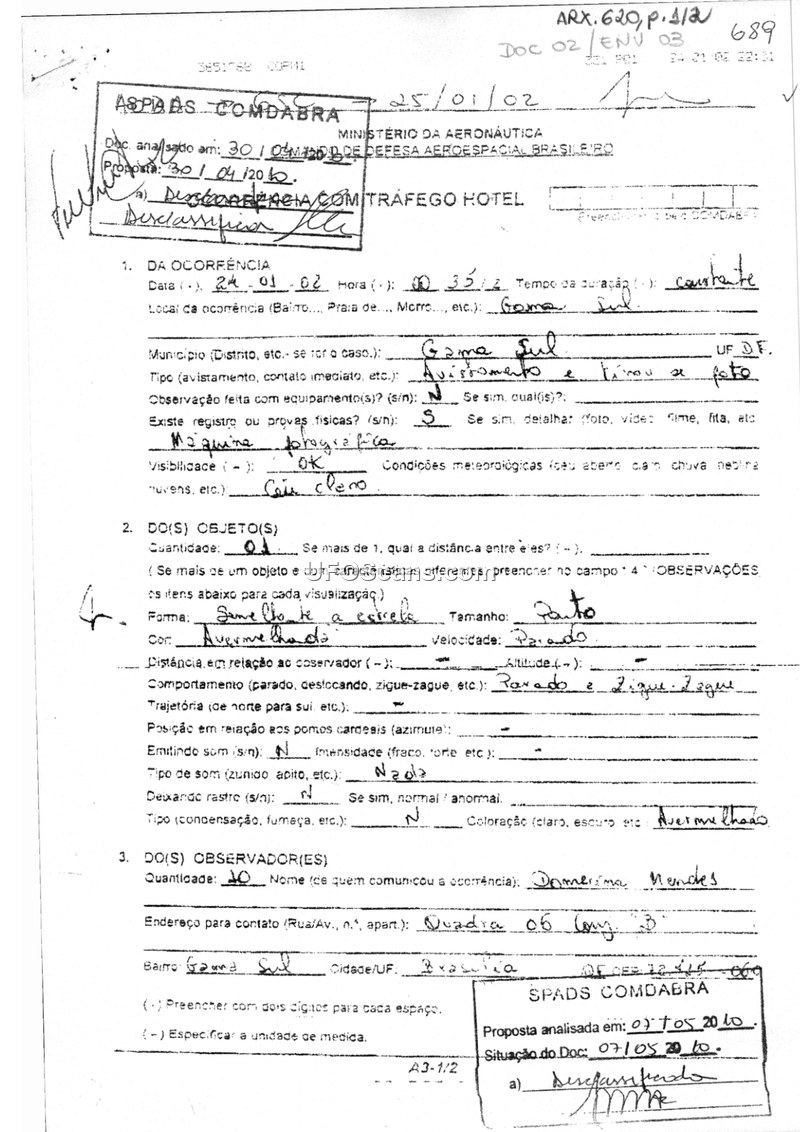 ARX. 620, p. 1/2
DOC 02/ENV 03
689
24 01 02 22:31
25/01/02
SPADS COMDABRA
MINISTÉRIO DA AERONÁUTICA
DE DEFESA AEROESPACIAL BRASILEIRO
Doc. analisado em: 30/04/2010.
Proposta: 30/04/2010.
a) Desclassificar
OCORRÊNCIA COM TRÁFEGO HOTEL
Preenchimento pelo COMDABRA
1. DA OCORRÊNCIA
Data (·): 24-01-02 Hora (·): Tempo da duração (·): constante
Local da ocorrência (Bairro..., Praia de..., Morro..., etc.): Gama Sul
Município (Distrito, etc.- se for o caso.): Gama Sul UF D.F.
Tipo (avistamento, contato imediato, etc.): Avistamento e tirou se foto
Observação feita com equipamento(s)? (s/n): N Se sim, qual(is)?:
Existe registro ou provas físicas? (s/n): S Se sim, detalhar (foto, vídeo, filme, fita, etc
Máquina fotográfica
Visibilidade (~): OK Condições meteorológicas (céu aberto, claro, chuva, neblina
nuvens, etc.): Céu claro
2. DO(S) OBJETO(S)
Quantidade: 01 Se mais de 1, qual a distância entre eles? (~).
UFOScans.com
( Se mais de um objeto e com características diferentes, preencher no campo "4." (OBSERVAÇÕES
os itens abaixo para cada visualização.)
Forma: Semelhante a estrela Tamanho: Ponto
Cor: Avermelhada Velocidade: Parado
Distância em relação ao observador (~): - Altitude (~): -
Comportamento (parado, deslocando, zigue-zague, etc.): Parado e Zigue-Zague
Trajetória (de norte para sul, etc.): -
Posição em relação aos pontos cardeais (azimute): -
Emitindo som (s/n): N Intensidade (fraco, forte, etc.): -
Tipo de som (zunido, apito, etc.): Nada
Deixando rastro (s/n): N Se sim, normal / anormal.
Tipo (condensação, fumaça, etc.): N Coloração (claro, escuro, etc Avermelhado
3. DO(S) OBSERVADOR(ES)
Quantidade: 10 Nome (de quem comunicou a ocorrência): Mendes
Endereço para contato (Rua/Av., n.º, apart.): Quadra 06 Conj. "B"
Bairro: Gama Sul Cidade/UF: Brasília DF CEP
(·) Preencher com dois dígitos para cada espaço.
(~) Especificar a unidade de medida.
A3-1/2
SPADS COMDABRA
Proposta analisada em: 07/05/2010.
Situação do Doc: 07/05/2010.
a) Desclassificado